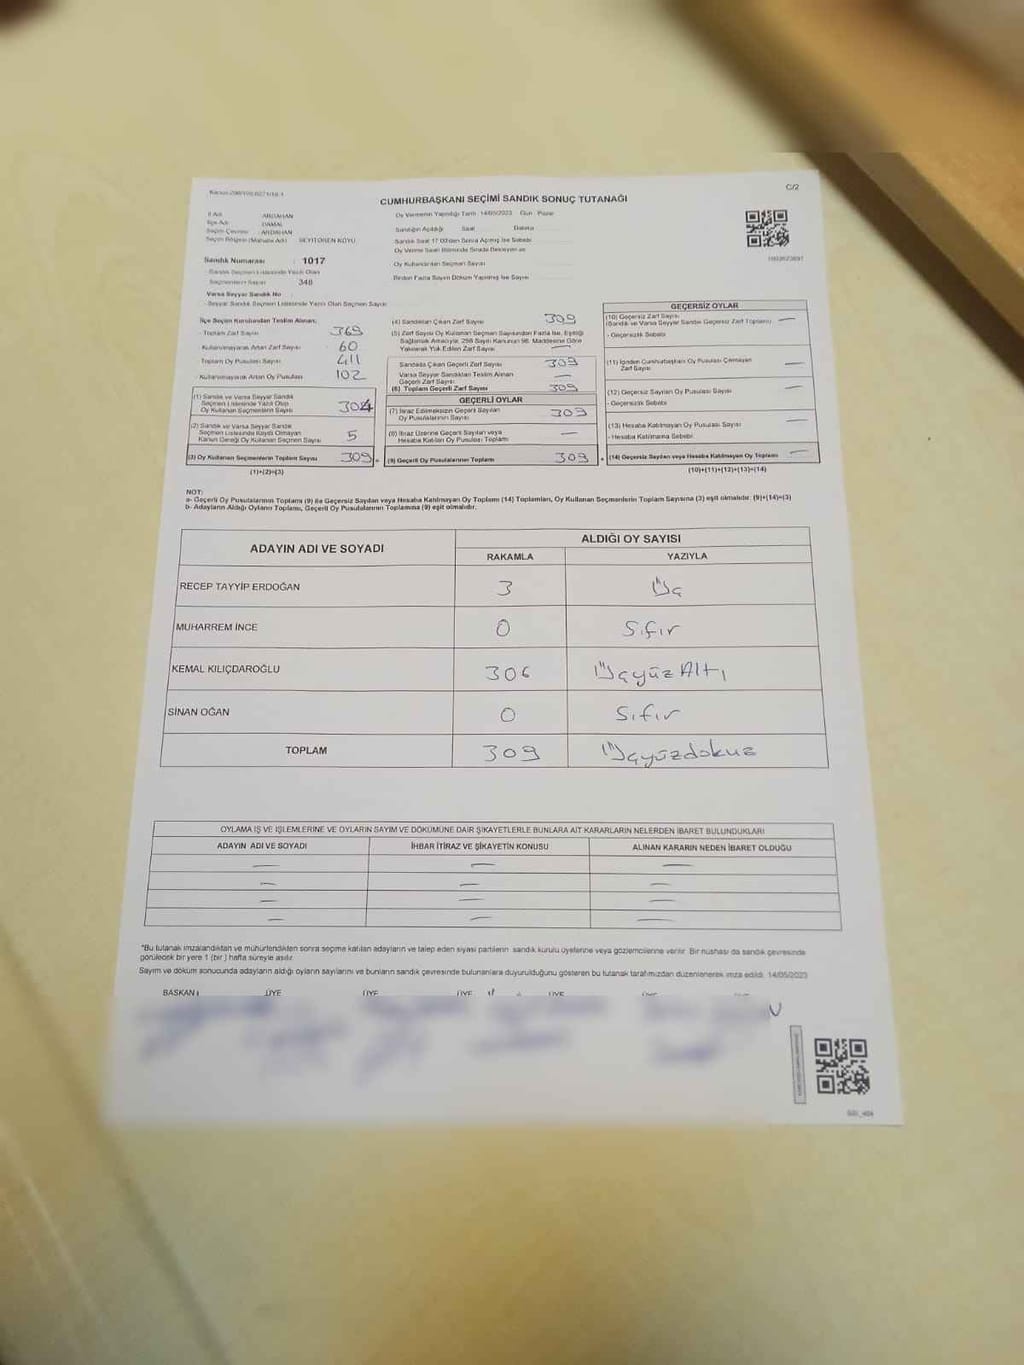 C/2
CUMHURBAŞKANI SEÇİMİ SANDIK SONUÇ TUTANAĞI
İl Adı : ARDAHAN
İlçe Adı : DAMAL
Seçim Çevresi : ARDAHAN
Seçim Bölgesi (Mahalle Adı) : SEYİTÖREN KÖYÜ
Sandık Numarası : 1017
Sandık Seçmen Listesinde Yazılı Olan
Seçmenlerin Sayısı : 348
Varsa Seyyar Sandık No
- Seyyar Sandık Seçmen Listesinde Yazılı Olan Seçmen Sayısı
Oy Vermenin Yapıldığı Tarih : 14/05/2023 Gün : Pazar
Sandığın Açıldığı Saat Dakika
Sandık Saat 17.00'den Sonra Açılmış İse Sebebi
Oy Verme Saati Bitiminde Sırada Bekleyen ve
Oy Kullandırılan Seçmen Sayısı
Birden Fazla Sayım Döküm Yapılmış İse Sayısı
İlçe Seçim Kurulundan Teslim Alınan;
- Toplam Zarf Sayısı 369
Kullanılmayarak Artan Zarf Sayısı 60
Toplam Oy Pusulası Sayısı 411
- Kullanılmayarak Artan Oy Pusulası 102
(1) Sandık ve Varsa Seyyar Sandık
Seçmen Listesinde Yazılı Olup
Oy Kullanan Seçmenlerin Sayısı 304
(2) Sandık ve Varsa Seyyar Sandık
Seçmen Listesinde Kaydı Olmayan
Kanun Gereği Oy Kullanan Seçmen Sayısı 5
(3) Oy Kullanan Seçmenlerin Toplam Sayısı 309
(1)+(2)=(3)
(4) Sandıktan Çıkan Zarf Sayısı 309
(5) Zarf Sayısı Oy Kullanan Seçmen Sayısından Fazla İse, Eşitliği
Sağlamak Amacıyla, 298 Sayılı Kanunun 98. Maddesine Göre
Yakılarak Yok Edilen Zarf Sayısı —
Sandıkta Çıkan Geçerli Zarf Sayısı 309
Varsa Seyyar Sandıktan Teslim Alınan
Geçerli Zarf Sayısı —
(6) Toplam Geçerli Zarf Sayısı 309
GEÇERLİ OYLAR
(7) İtiraz Edilmeksizin Geçerli Sayılan
Oy Pusulalarının Sayısı 309
(8) İtiraz Üzerine Geçerli Sayılan veya
Hesaba Katılan Oy Pusulası Toplamı —
(9) Geçerli Oy Pusulalarının Toplamı 309
GEÇERSİZ OYLAR
(10) Geçersiz Zarf Sayısı
(Sandık ve Varsa Seyyar Sandık Geçersiz Zarf Toplamı) —
- Geçersizlik Sebebi
(11) İçinden Cumhurbaşkanı Oy Pusulası Çıkmayan
Zarf Sayısı —
(12) Geçersiz Sayılan Oy Pusulası Sayısı —
- Geçersizlik Sebebi
(13) Hesaba Katılmayan Oy Pusulası Sayısı —
- Hesaba Katılmama Sebebi
(14) Geçersiz Sayılan veya Hesaba Katılmayan Oy Toplamı —
(10)+(11)+(12)+(13)=(14)
NOT:
a- Geçerli Oy Pusulalarının Toplamı (9) ile Geçersiz Sayılan veya Hesaba Katılmayan Oy Toplamı (14) Toplamları, Oy Kullanan Seçmenlerin Toplam Sayısına (3) eşit olmalıdır. (9)+(14)=(3)
b- Adayların Aldığı Oyların Toplamı, Geçerli Oy Pusulalarının Toplamına (9) eşit olmalıdır.
ADAYIN ADI VE SOYADI
ALDIĞI OY SAYISI
RAKAMLA YAZIYLA
RECEP TAYYİP ERDOĞAN 3 Üç
MUHARREM İNCE 0 Sıfır
KEMAL KILIÇDAROĞLU 306 ÜçyüzAltı
SİNAN OĞAN 0 Sıfır
TOPLAM 309 Üçyüzdokuz
OYLAMA İŞ VE İŞLEMLERİNE VE OYLARIN SAYIM VE DÖKÜMÜNE DAİR ŞİKAYETLERLE BUNLARA AİT KARARLARIN NELERDEN İBARET BULUNDUKLARI
ADAYIN ADI VE SOYADI İHBAR İTİRAZ VE ŞİKAYETİN KONUSU ALINAN KARARIN NEDEN İBARET OLDUĞU
— — —
— — —
— — —
— — —
*Bu tutanak imzalandıktan ve mühürlendikten sonra seçime katılan adayların ve talep eden siyasi partilerin sandık kurulu üyelerine veya gözlemcilerine verilir. Bir nüshası da sandık çevresinde
görülecek bir yere 1 (bir ) hafta süreyle asılır.
Sayım ve döküm sonucunda adayların aldığı oyların sayılarını ve bunların sandık çevresinde bulunanlara duyurulduğunu gösteren bu tutanak tarafımızdan düzenlenerek imza edildi. 14/05/2023
BAŞKAN ÜYE ÜYE ÜYE ÜYE ÜYE ÜYE